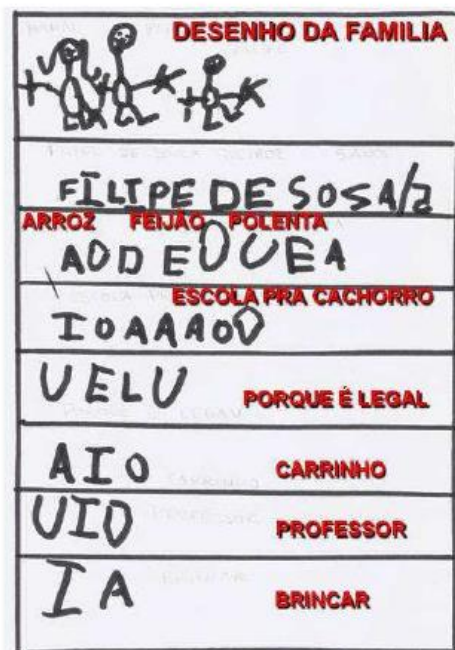 DESENHO DA FAMILIA
FILIPE DE SOSA/2
ARROZ FEIJÃO POLENTA
AODEOUEA
ESCOLA PRA CACHORRO
IOAAAOO
UELU PORQUE É LEGAL
AIO CARRINHO
UIO PROFESSOR
IA BRINCAR